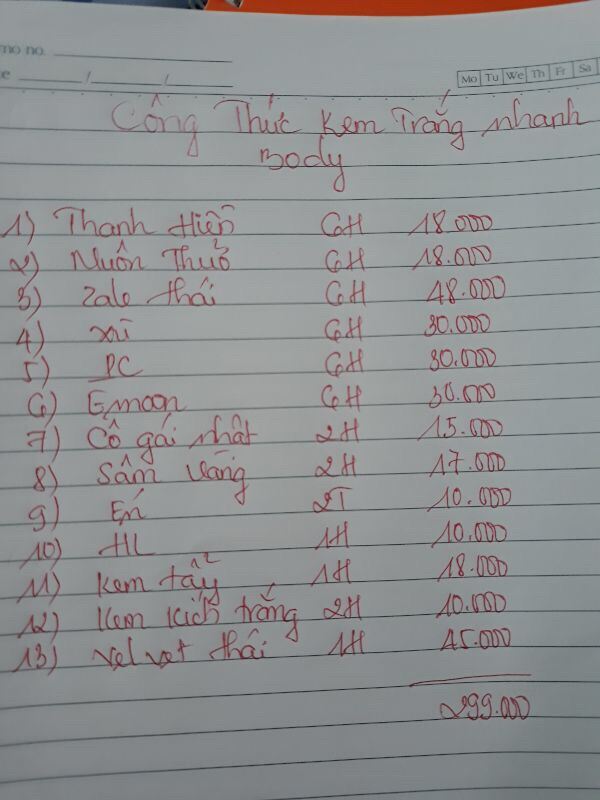 mo no.
e / /
Mo Tu We Th Fr Sa
Công Thức Kem Trắng nhanh
Body
1) Thanh Hiền 6H 18.000
2) Muôn Thuở 6H 18.000
3) Zalo thái 6H 48.000
4) xù 6H 30.000
5) PC 6H 30.000
6) E.moon 6H 30.000
7) Cô gái nhật 2H 15.000
8) Sâm Vàng 2H 17.000
9) Én 2T 10.000
10) HL 1H 10.000
11) Kem tẩy 1H 18.000
12) Kem Kích trắng 2H 10.000
13) Velvet thái 1H 45.000
299.000